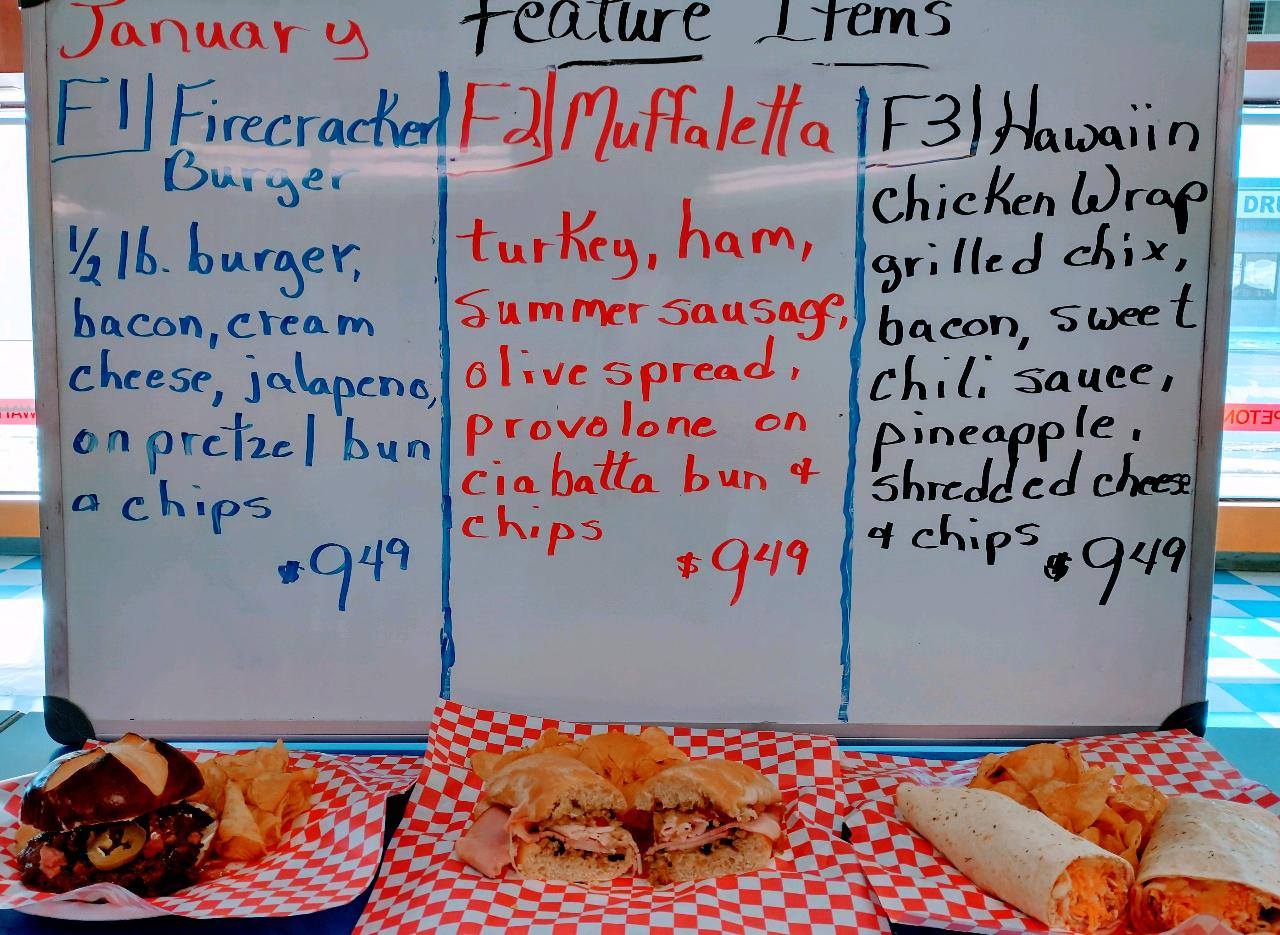 January Feature Items
F1 Firecracker
Burger
½ lb. burger,
bacon, cream
cheese, jalapeno,
on pretzel bun
& chips
$9 49
F2 Muffaletta
turkey, ham,
summer sausage,
olive spread,
provolone on
ciabatta bun &
chips
$9 49
F3 Hawaiin
chicken Wrap
grilled chix,
bacon, sweet
chili sauce,
pineapple,
shredded cheese
& chips
$9 49
DRU